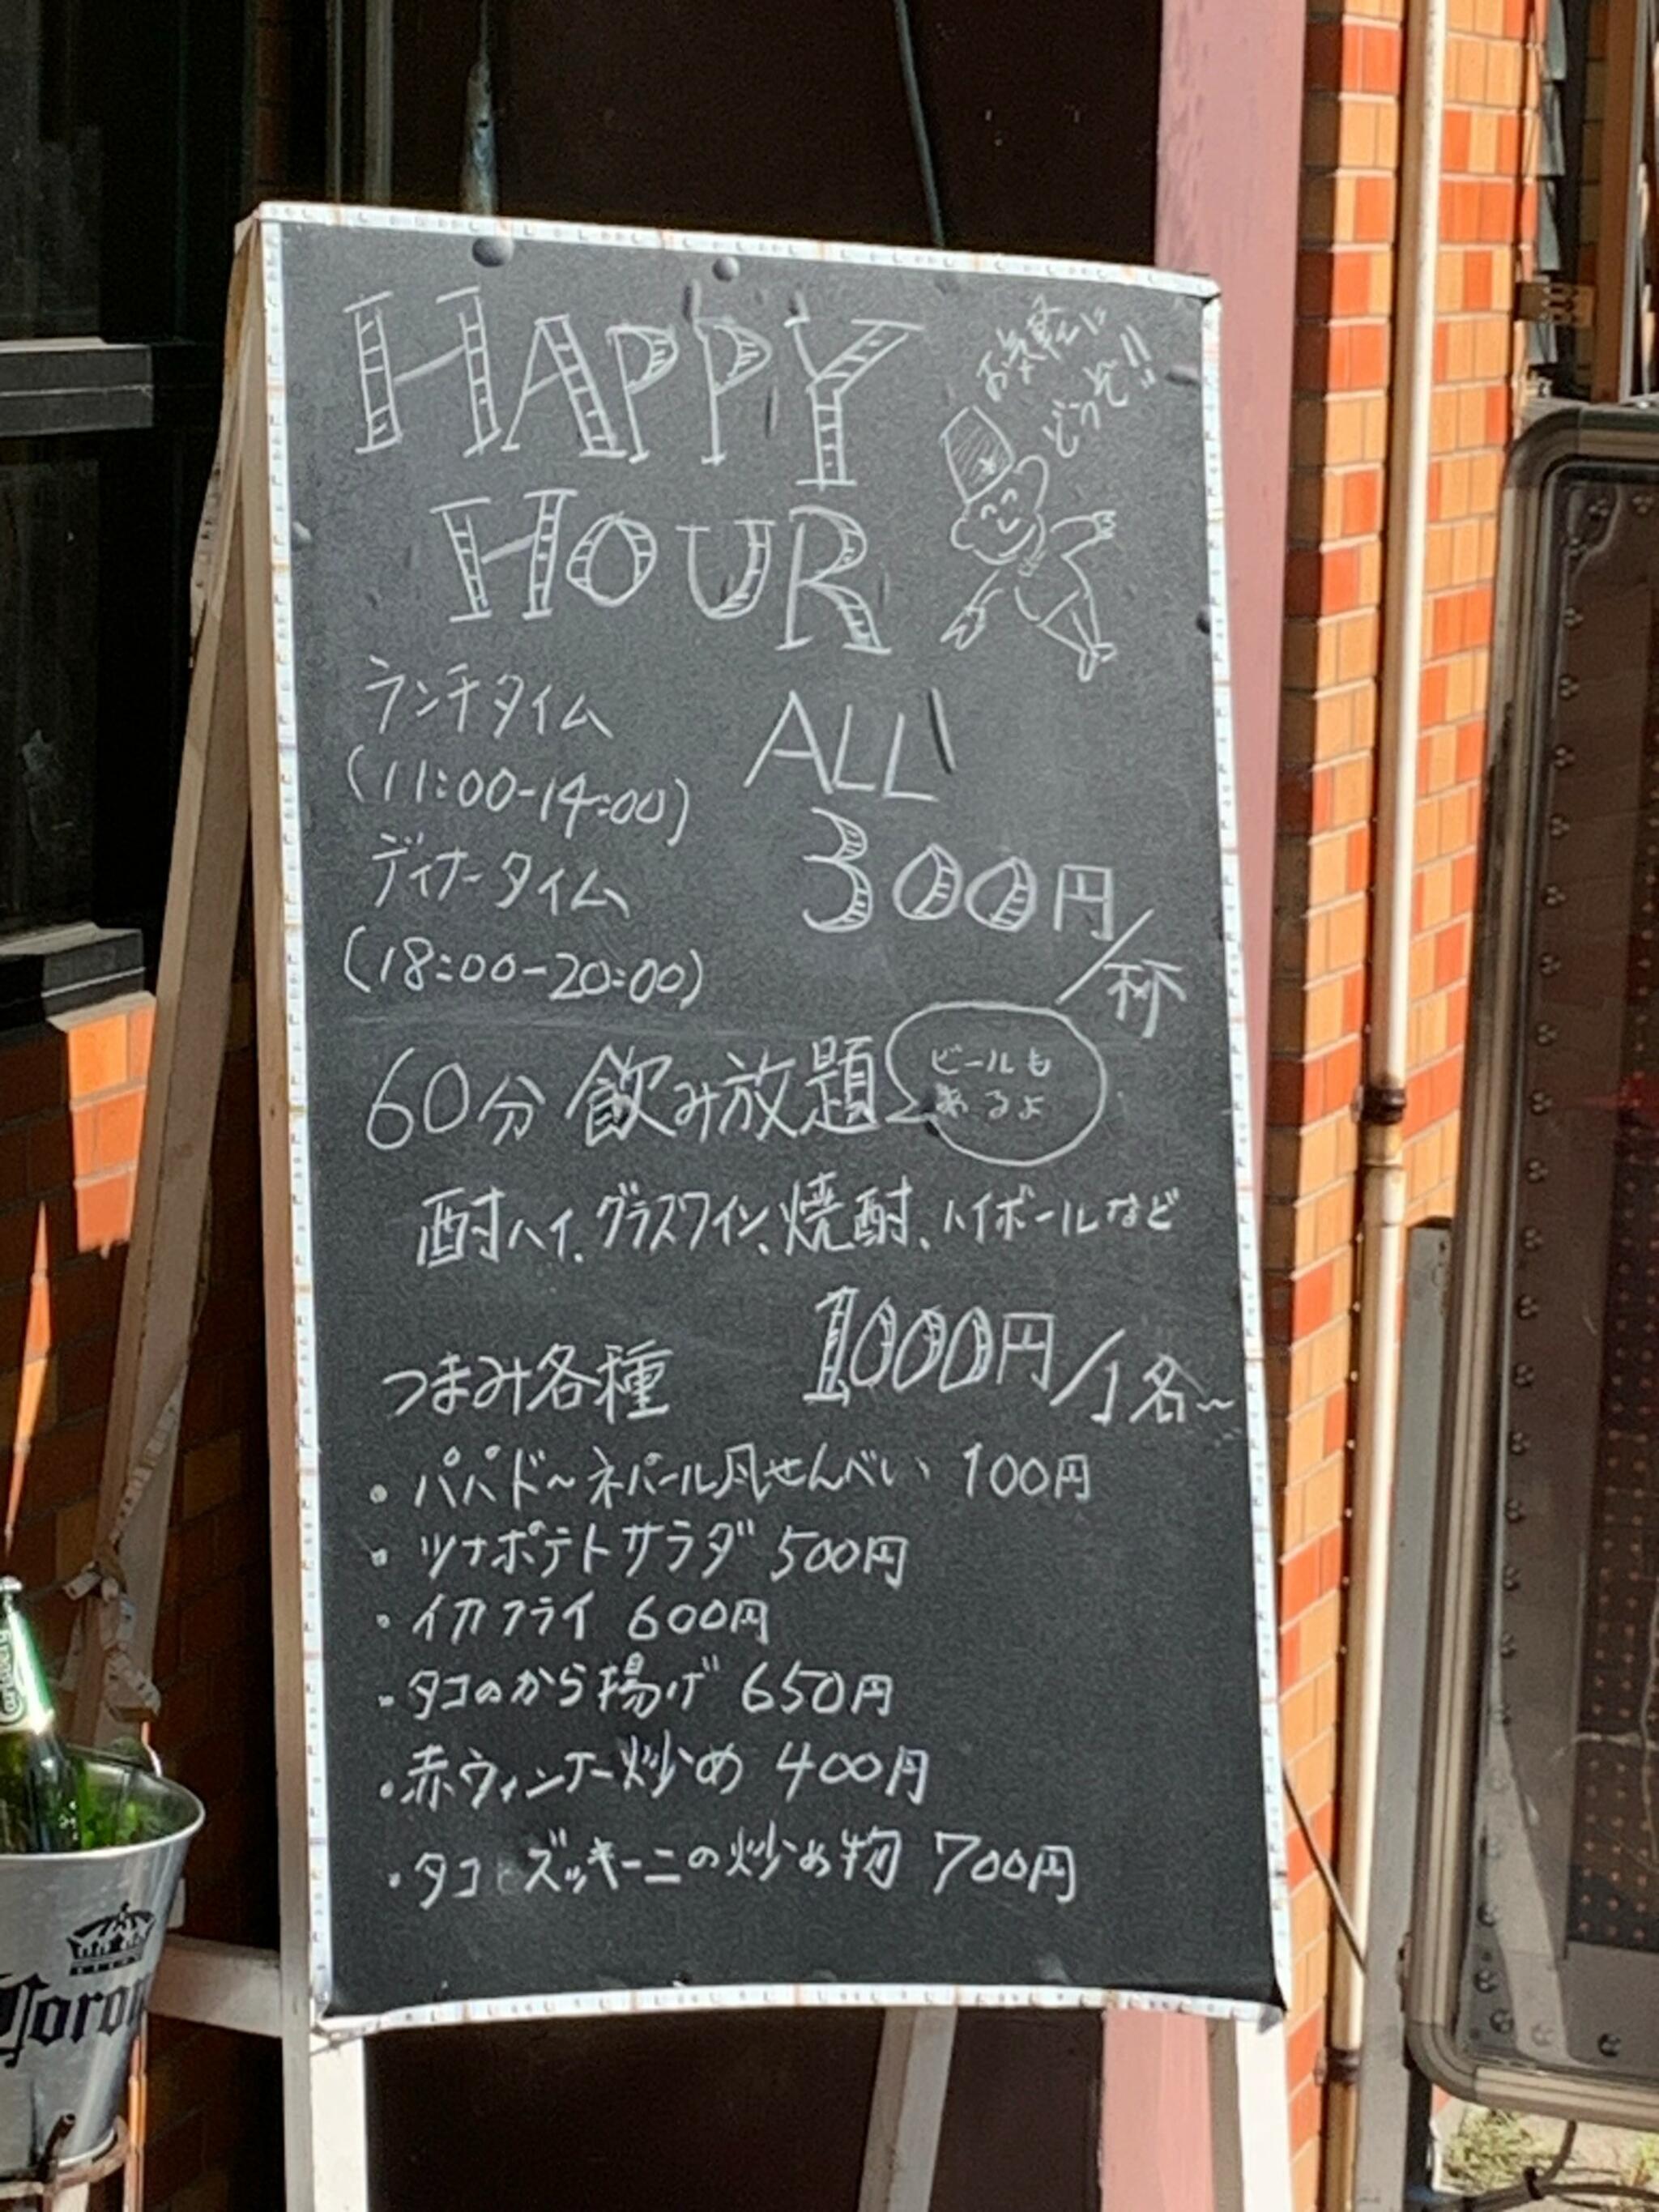 HAPPY
HOUR
お気軽に
どうぞ!!
ランチタイム
(11:00-14:00)
ディナータイム
(18:00-20:00)
ALL
300円/杯
60分 飲み放題
ビールも
あるよ
酎ハイ、グラスワイン、焼酎、ハイボールなど
1000円/1名~
つまみ各種
・パパド~ネパール風せんべい 100円
・ツナポテトサラダ 500円
・イカフライ 600円
・タコのから揚げ 650円
・赤ウィンナー炒め 400円
・タコとズッキーニの炒め物 700円
Coron